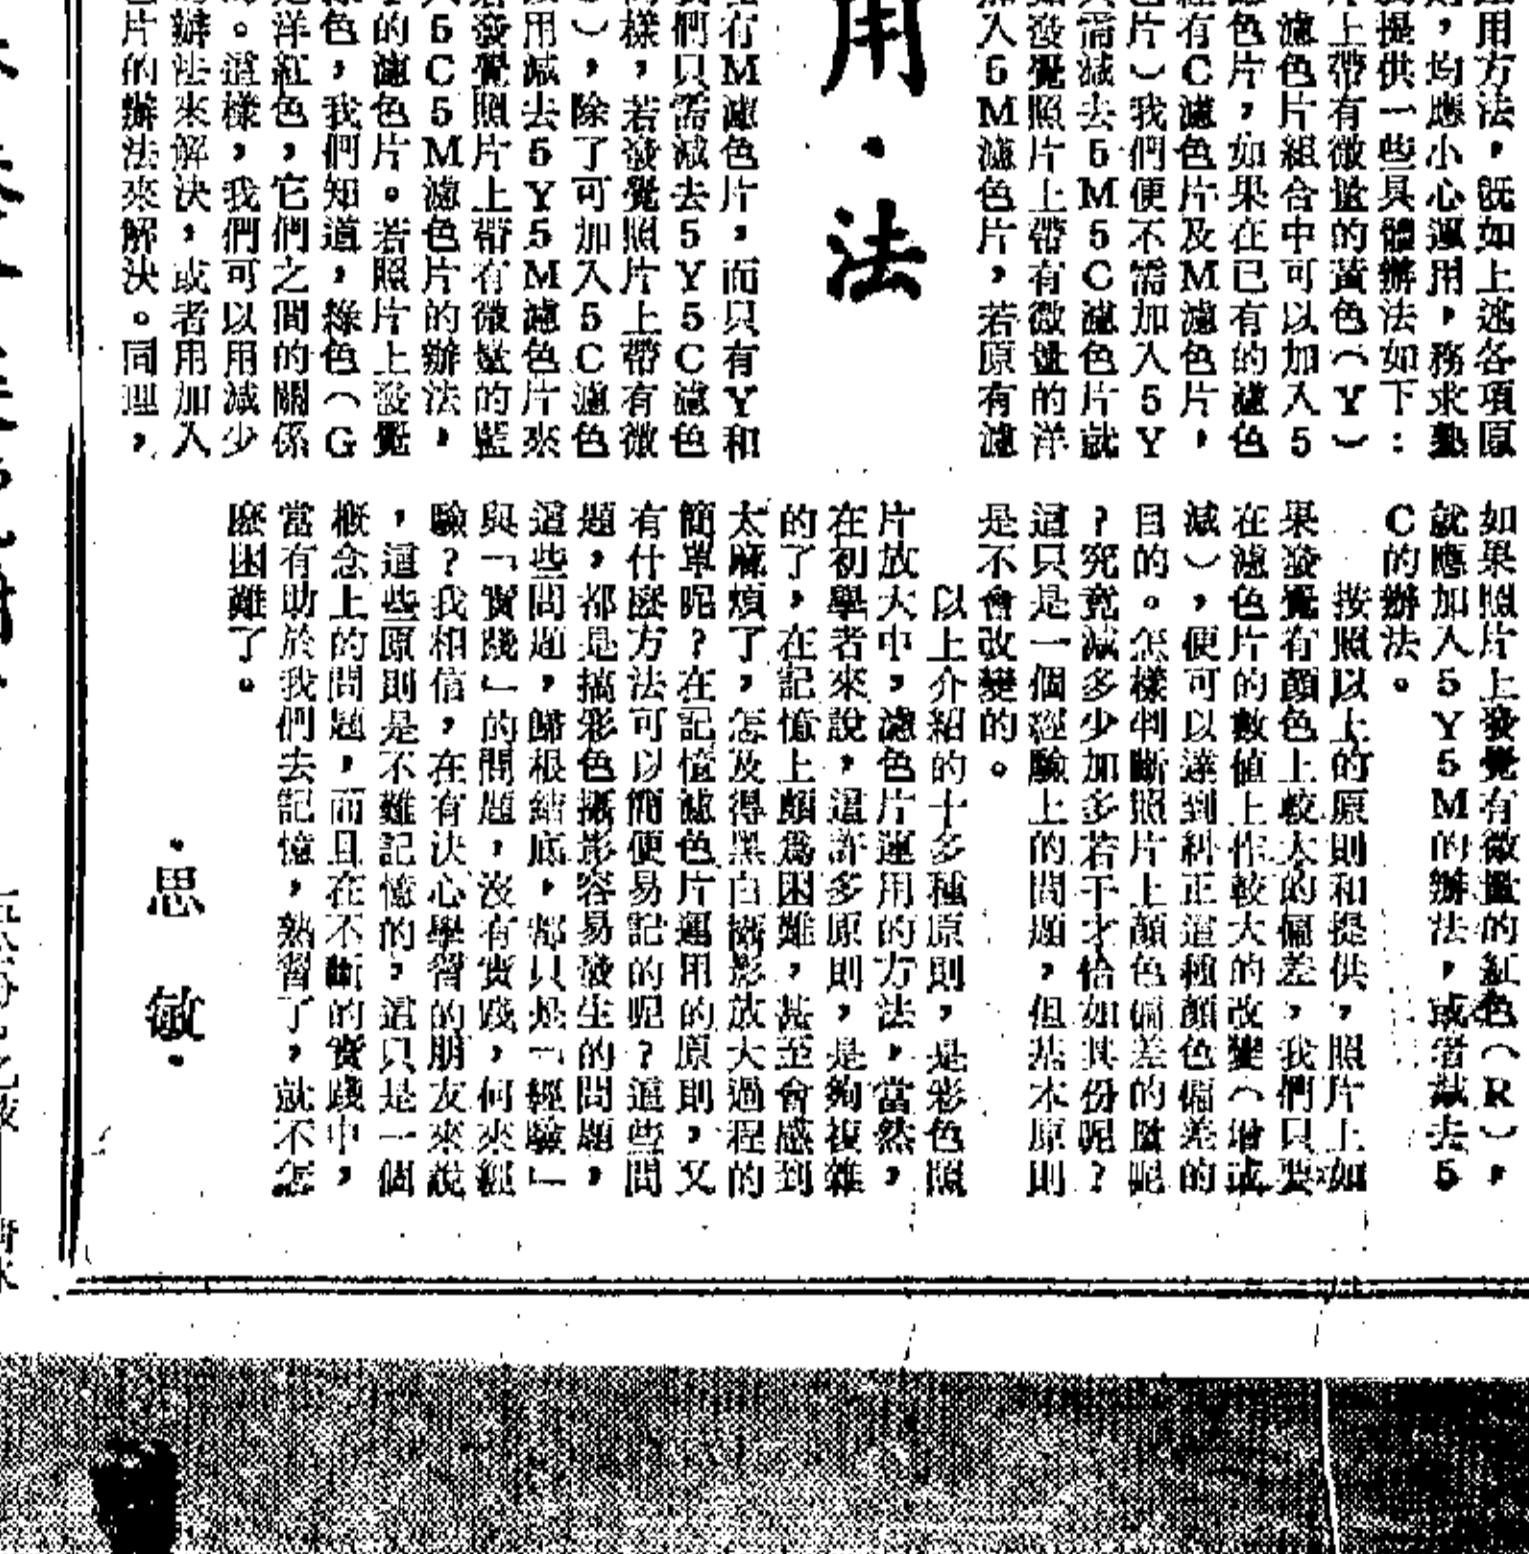 用方法,旣如上述各項原
則,均應小心運用,務求熟
提供一些具體辦法如下:
片上帶有微量的黃色(Y)
濾色片組合中可以加入5
濾色片,如果在已有的濾色
有C濾色片及M濾色片,
色片)我們便不需加入5Y
只需減去5M5C濾色片就
如發覺照片上帶有微量的洋
加入5M濾色片,若原有濾
用・法
有M濾色片,而只有Y和
我們只需減去5Y5C濾色
同樣,若發覺照片上帶有微
),除了可加入5C濾色
用減去5Y5M濾色片來
若發覺照片上帶有微量的藍
入5C5M濾色片的辦法,
的濾色片。若照片上發覺
綠色,我們知道,綠色(G
是洋紅色,它們之間的關係
。這樣,我們可以用減少
辦法來解決,或者用加入
色片的辦法來解決。同理,
如果照片上發覺有微量的紅色(R),
就應加入5Y5M的辦法,或者減去5
C的辦法。
按照以上的原則和提供,照片上如
果發覺有顏色上較大的偏差,我們只要
在濾色片的數值上作較大的改變(增或
減),便可以達到糾正這種顏色偏差的
目的。怎樣判斷照片上顏色偏差的量呢
?究竟減多少加多若干才恰如其份呢?
這只是一個經驗上的問題,但基本原則
是不會改變的。
以上介紹的十多種原則,是彩色照
片放大中,濾色片運用的方法,當然,
在初學者來說,這許多原則,是夠複雜
的了,在記憶上頗爲困難,甚至會感到
太麻煩了,怎及得黑白攝影放大過程的
簡單呢?在記憶濾色片運用的原則,又
有什麽方法可以簡便易記的呢?這些問
題,都是搞彩色攝影容易發生的問題,
這些問題,歸根結底,都只是「經驗」
與「實踐」的問題,沒有實踐,何來經
驗?我相信,在有決心學習的朋友來說
,這些原則是不難記憶的,這只是一個
概念上的問題,而且在不斷的實踐中,
當有助於我們去記憶,熟習了,就不怎
麽困難了。
・思 敏・